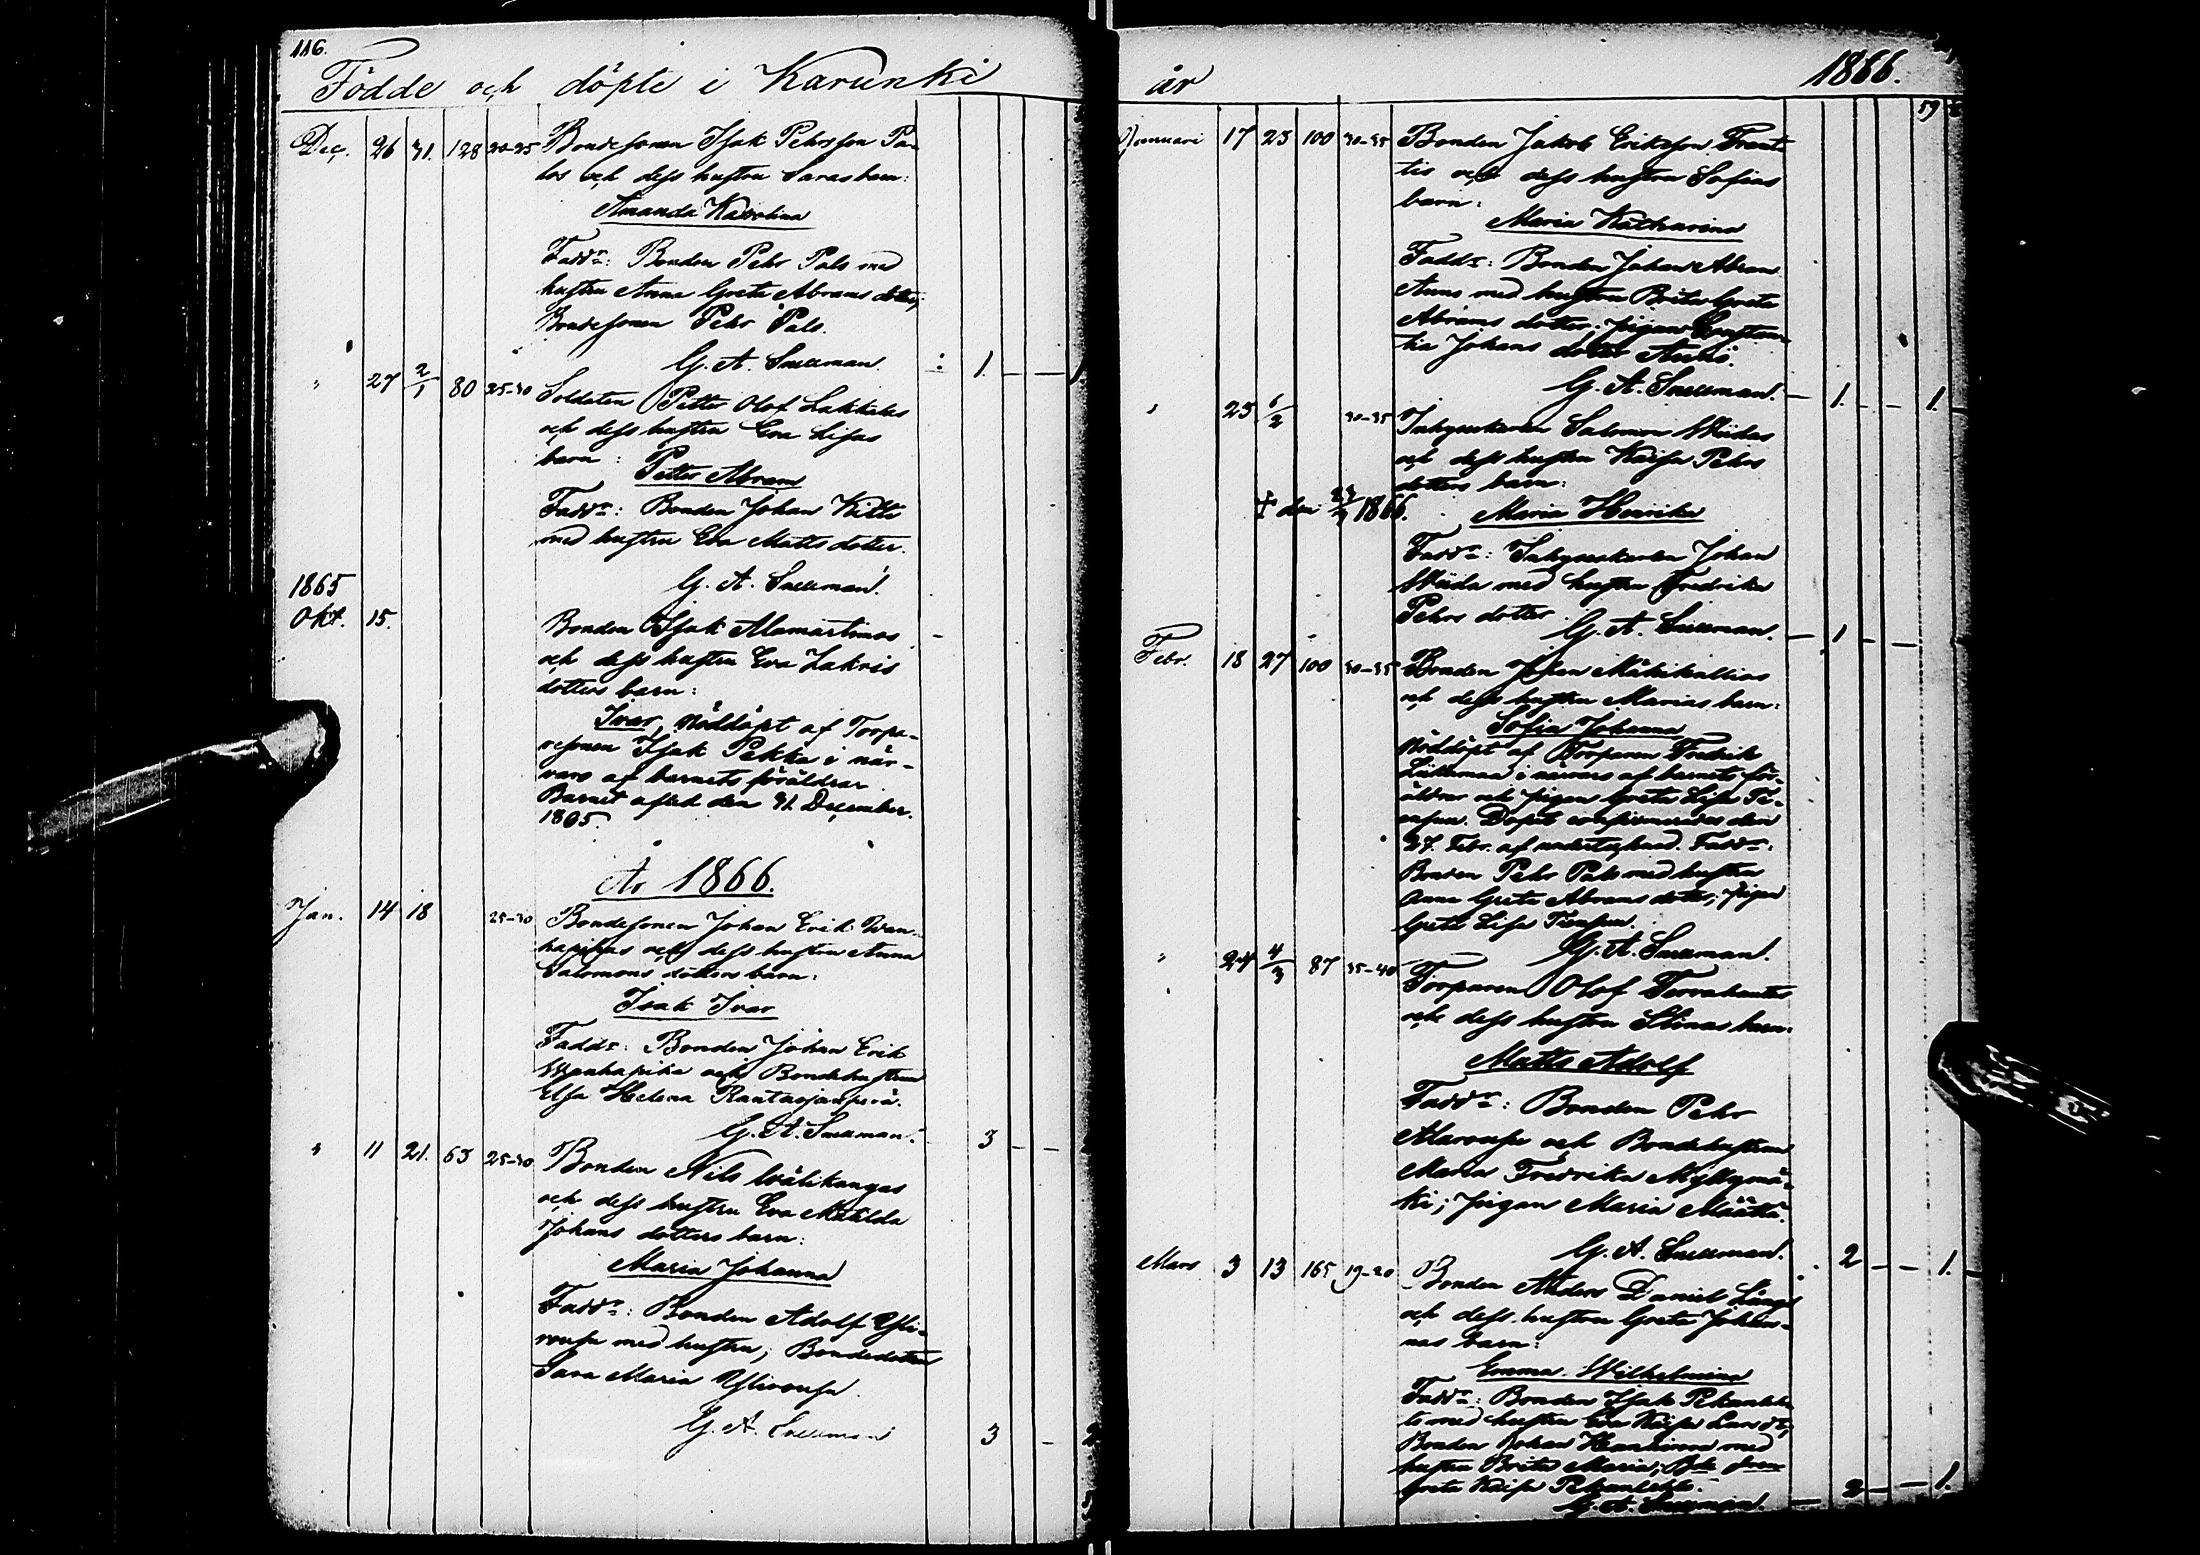 116.
Födde och döpte i Karunki
Dec. 26 31. 128 20-25 Bondesonen Isak Pehrsson Pa-
los och dess hustru Saras barn:
Amanda Karolina
Faddr: Bonden Pehr Palo med
hustru Anna Greta Abrams dotter;
Bondesonen Pehr Palo.
G. A. Snellman. 1.
" 27 2/1 80 25-30 Soldaten Petter Olof
och dess hustru Eva Lisas
barn:
Petter Abram
Faddr: Bonden Johan Kitti
med hustru Eva Matts dotter.
G. A. Snellman.
1865
Okt. 15. Bonden Isak Alamartimos
och dess hustru Eva Zakris
dotters barn:
Ivar, Nöddöpt af Torpa-
resonen Isak Pekka i när-
varo af barnets föräldrar.
Barnet afled den 31. December.
1865.
År 1866.
Jan. 14 18 25-30 Bondesonen Johan Erik Wan-
hapihas och dess hustru Anna
Salomons dotters barn:
Isak Ivar
Faddr: Bonden Johan Erik
Wanhapiha och Bondehustrun
Elsa Helena Rantasjanperä.
G. A. Snellman. 3
" 11 21. 63 25-30 Bonden Nils Wälikangas
och dess hustru Eva Matilda
Johans dotters barn:
Maria Johanna
Faddr: Bonden Adolf Yli-
rousu med hustru; Bondedottren
Sara Maria Ylirousu.
G. A. Snellman 3
år 1866.
59
Januari 17 23 100 30-35 Bonden Jakob Eriksson Frant-
tis och dess hustru Sofias
barn:
Maria Katharina
Faddr: Bonden Johan Abram
med hustru Brita Greta
Abrams dotter; pigan Constan-
tia Johans dotter
G. A. Snellman. 1. 1.
" 25 6/2 30-35 Inhyseskarlen Salomon Wiidas
och dess hustru Kaisa Pehrs
dotters barn:
† den 1866. Maria Henrika
Faddr: Inhyseskarlen Johan
Wiida med hustru Fredrika
Pehrs dotter.
G. A. Snellman. 1
Febr. 18 27 100 30-35 Bonden Johan Mäkikallios
och dess hustru Marias barn:
Sofia Johanna
Nöddöpt af Torparen Fredrik
Liikamaa i närvaro af barnets för-
äldrar och pigan Greta Lisa
Dopet confirmerades den
27. Febr. af undertecknad. Faddr:
Bonden Pehr Palo med hustru
Anna Greta Abrams dotter; Pigan
Greta Lisa
G. A. Snellman.
" 24 4/3 87 35-40 Torparen Olof
och dess hustru Stinas barn:
Matts Adolf
Faddr: Bonden Pehr
Alarousu och Bondehustrun
Maria Fredrika Myllymä-
ki; Pigan Maria Määttä.
G. A. Snellman. 2 1.
Mars 3 13 165 19-20 Bonden Anders Daniel
och dess hustru Greta Johan-
nas barn:
Emma Wilhelmina
Faddr: Bonden Isak
med hustru Eva Kaisa
Bonden Johan med
hustru Brita Maria;
Greta Kaisa
G. A. Snellman. 2 1.